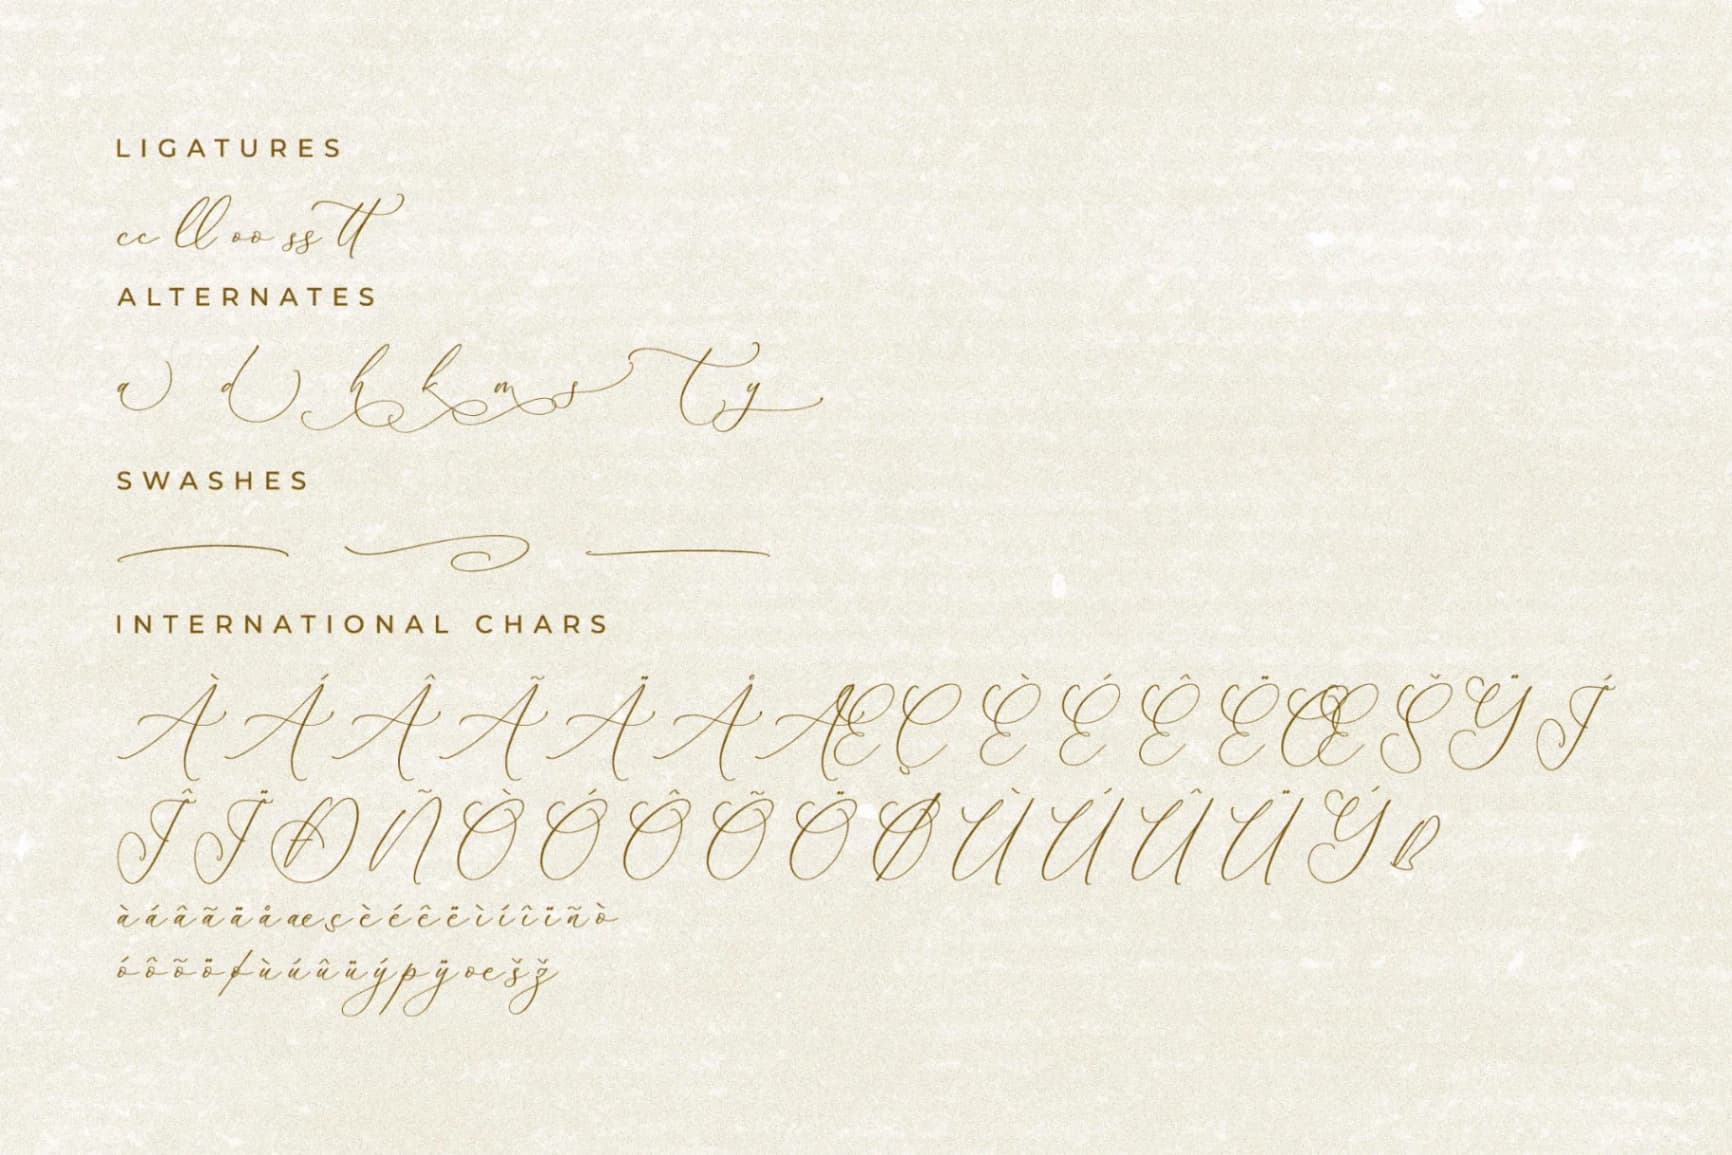 LIGATURES
cc ll oo ss tt
ALTERNATES
a d h k m s t y
SWASHES
INTERNATIONAL CHARS
À Á Â Ã Ä Å Æ Ç È É Ê Ë Œ Š Ÿ Í
Î Ï Ð Ñ Ò Ó Ô Õ Ö Ø Ù Ú Û Ü Ý
à á â ã ä å æ ç è é ê ë ì í î ï ñ ò
ó ô õ ö ø ù ú û ü ý þ ÿ œ š ž